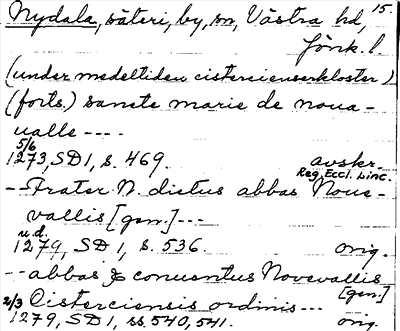 Nydala, säteri, by, sn, Västra hd, 15.
Jönk. l.
(under medeltiden cistercienserkloster)
(forts.) sancte marie de noua-
ualle ----
5/6
1273, SD 1, s. 469. avskr.
Reg. Eccl. Linc.
-- Frater N. dictus abbas Noue-
vallis [gen.] ---
u.d.
1279, SD 1, s. 536. orig.
-- abbas & conuentus Novevallis
[gen.]
2/3 Cisterciensis ordinis ---
1279, SD 1, ss. 540, 541. orig.